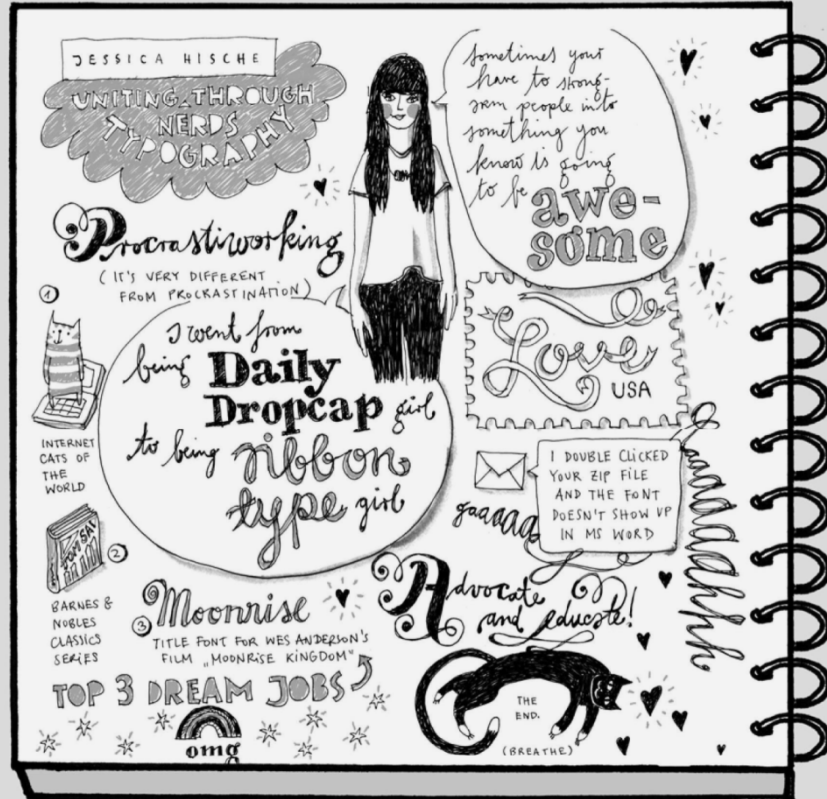 JESSICA HISCHE
UNITING THROUGH
NERDS
TYPOGRAPHY
sometimes your
have to strong-
arm people into
something you
know is going
to be awe-
some
Procrastiworking
(IT'S VERY DIFFERENT
FROM PROCKASTINATION)
I went from
being Daily
Dropcap girl
to being ribbon
type girl
Love
USA
1
INTERNET
CATS OF
THE
WORLD
2
BARNES &
NOBLES
CLASSICS
SERIES
3 Moonrise
TITLE FONT FOR WES ANDERSON'S
FILM „MOONRISE KINGDOM"
TOP 3 DREAM JOBS
omg
I DOUBLE CLICKED
YOUR ZIP FILE
AND THE FONT
DOESN'T SHOW UP
IN MS WORD
Advocate
and educate!
THE
END.
(BREATHE)